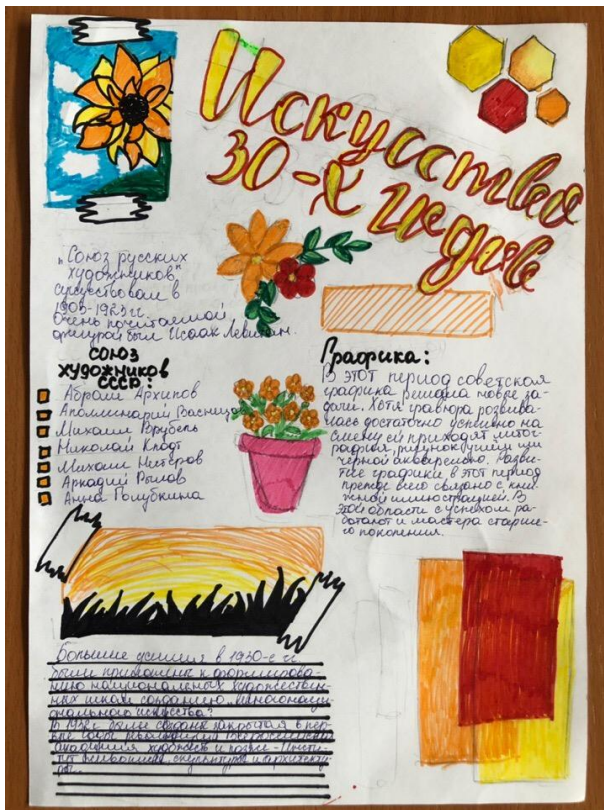 Искусство
30-х годов
"Союз русских
художников"
существовал в
1903-1923 гг
Очень почитаемой
фигурой был Исаак Левитан.
СОЮЗ
ХУДОЖНИКОВ
СССР:
Абрам Архипов
Аполлинарий Васнецов
Михаил Врубель
Николай Клодт
Михаил Нестеров
Аркадий Рылов
Анна Голубкина
Графика:
В этот период советская
графика решила новые за-
дачи. Хотя гравюра развива-
лась достаточно успешно на
смену ей приходят литог-
рафия, рисунок углем или
черной акварелью. Разви-
тие графики в этот период
прежде всего связано с книж-
ной иллюстрацией. В
этой области с успехом ра-
ботают и мастера старше-
го поколения.
Большие усилия в 1930-е гг
были приложены к формирова-
нию национальных художествен-
ных школ созданию
искусства
В 1932 г. была создана закрытая в пер-
вые годы революции
Академия художеств и позже - Инсти-
тут живописи, скульптуры и архитекту-
ры.